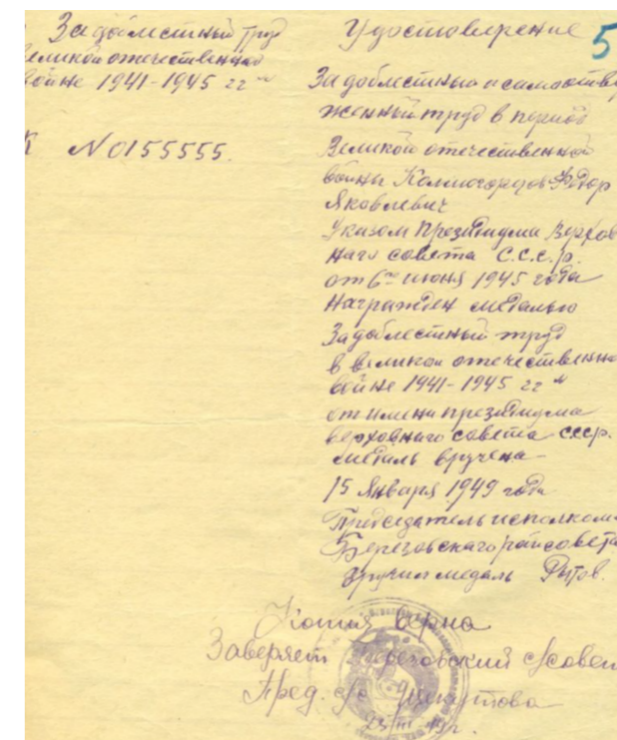 За доблестный труд
Великой отечественной
войне 1941-1945 гг"
К № 0155555.
Удостоверение 5
За доблестный и самоотвер
женный труд в период
Великой отечественной
войны Колмогоров Федор
Яковлевич
Указом Президиума Верхов
наго совета С.С.С.р.
от 6го июня 1945 года
Награжден медалью
За доблестный труд
в великой отечественно
войне 1941-1945 гг"
от имени президиума
верховнаго совета ссср.
медаль вручена
15 Января 1949 года
Председатель исполкома
Березовскаго райсовета
вручил медаль
Копия верна
Заверяет Березовский с/совет
Пред. с/с
23/III 49г.